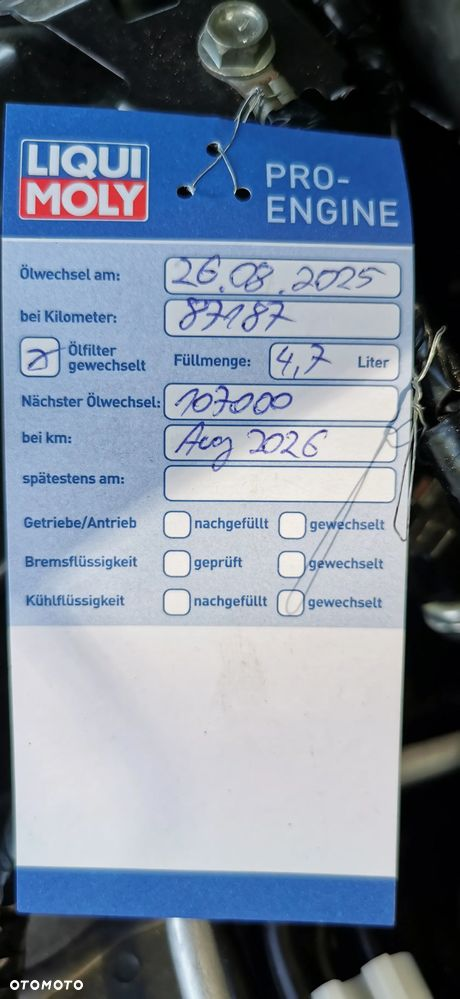 LIQUI MOLY
PRO-ENGINE
Ölwechsel am: 26.08.2025
bei Kilometer: 87187
Ölfilter gewechselt Füllmenge: 4,7 Liter
Nächster Ölwechsel: 107000
bei km: Aug 2026
spätestens am:
Getriebe/Antrieb nachgefüllt gewechselt
Bremsflüssigkeit geprüft gewechselt
Kühlflüssigkeit nachgefüllt gewechselt
OTOMOTO